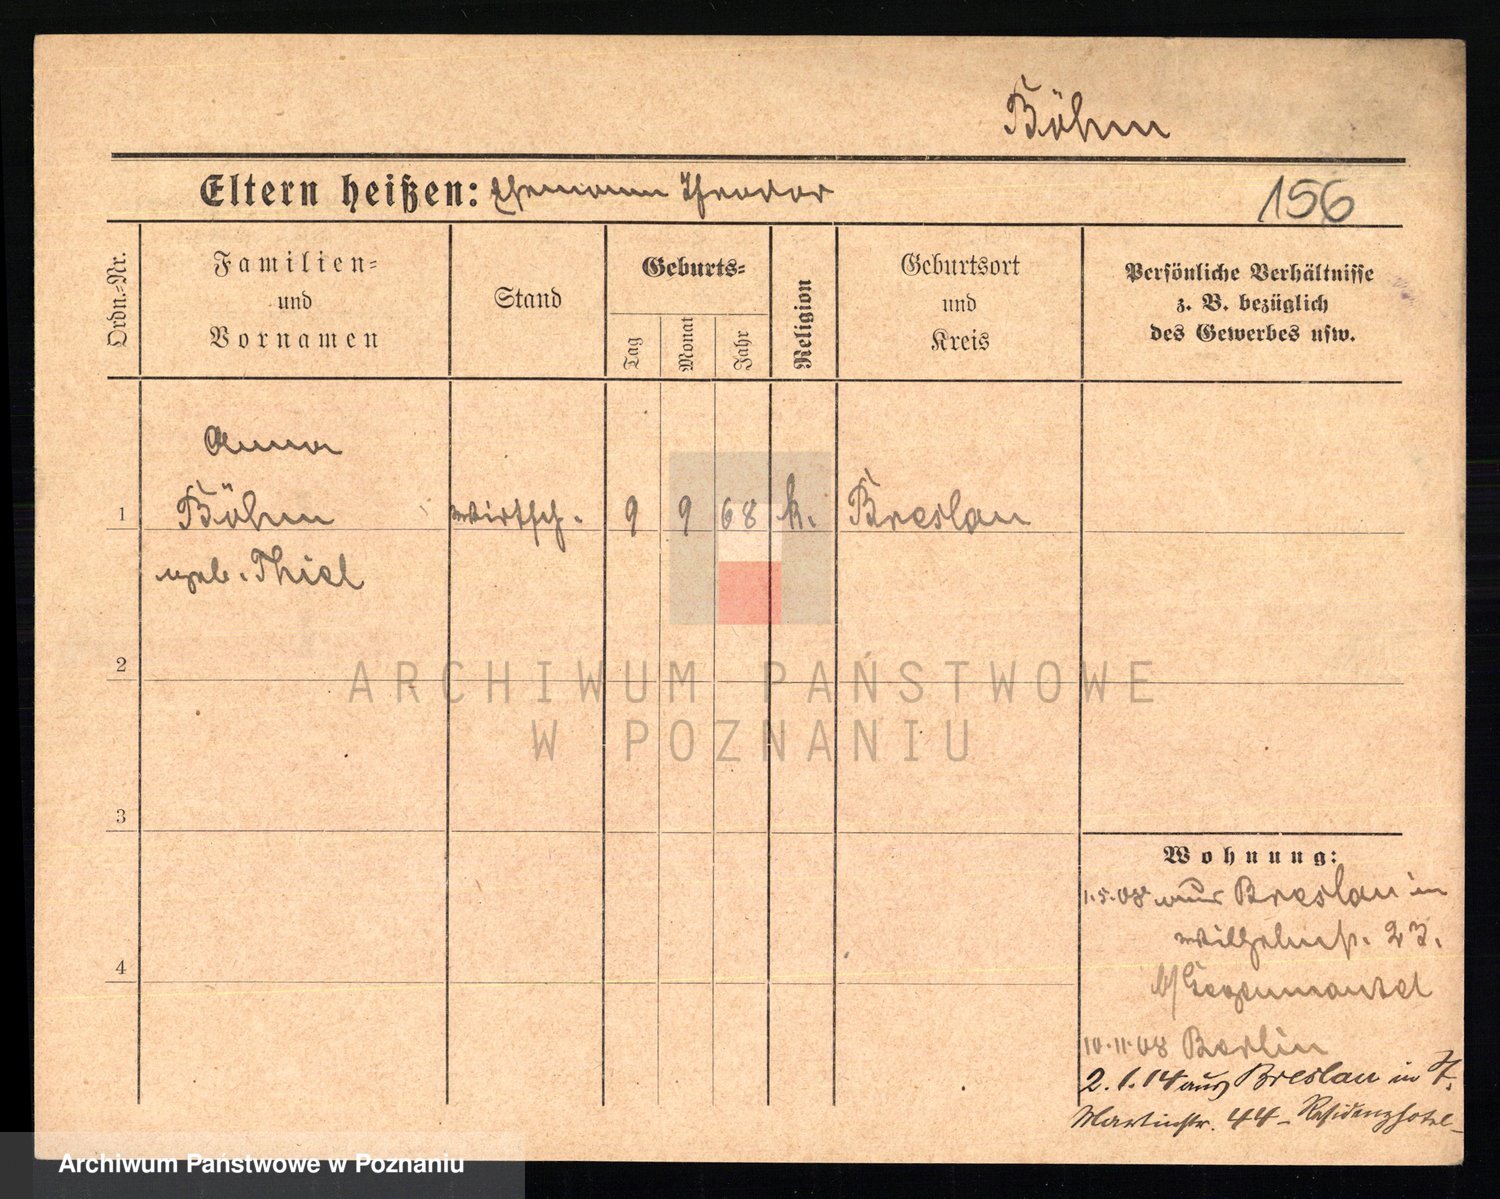 Böhm
Eltern heißen: Ehemann Theodor
156
Ordn.-Nr.
Familien-
und
Vornamen
Stand
Geburts-
Tag
Monat
Jahr
Religion
Geburtsort
und
Kreis
Persönliche Verhältnisse
z. B. bezüglich
des Gewerbes usw.
Anna
1 Böhm Wirtsch. 9 9 68 k. Breslau
geb. Thiel
2
ARCHIWUM PAŃSTWOWE
W POZNANIU
3
Wohnung:
1.5.08 aus Breslau in
Wilhelmstr. 23.
b/
4
10.11.08 Berlin
2.1.14 aus Breslau in St.
Martinstr. 44 - Residenzhotel -
Archiwum Państwowe w Poznaniu